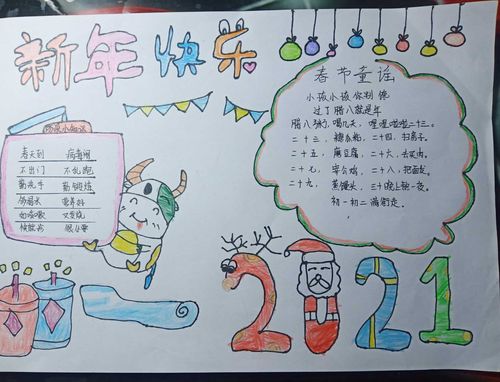 新年快乐
春节童谣
小孩小孩你别馋
过了腊八就是年
腊八粥,喝几天,哩哩啦啦二十三。
二十三,糖瓜粘,二十四,扫房子。
二十五,磨豆腐,二十六,去买肉。
二十七,宰公鸡,二十八,把面发。
二十九,蒸馒头,三十晚上熬一夜。
初一初二满街走。
防疫小知识
春天到 病毒闹
不出门 不乱跑
勤洗手 勤锻炼
2021